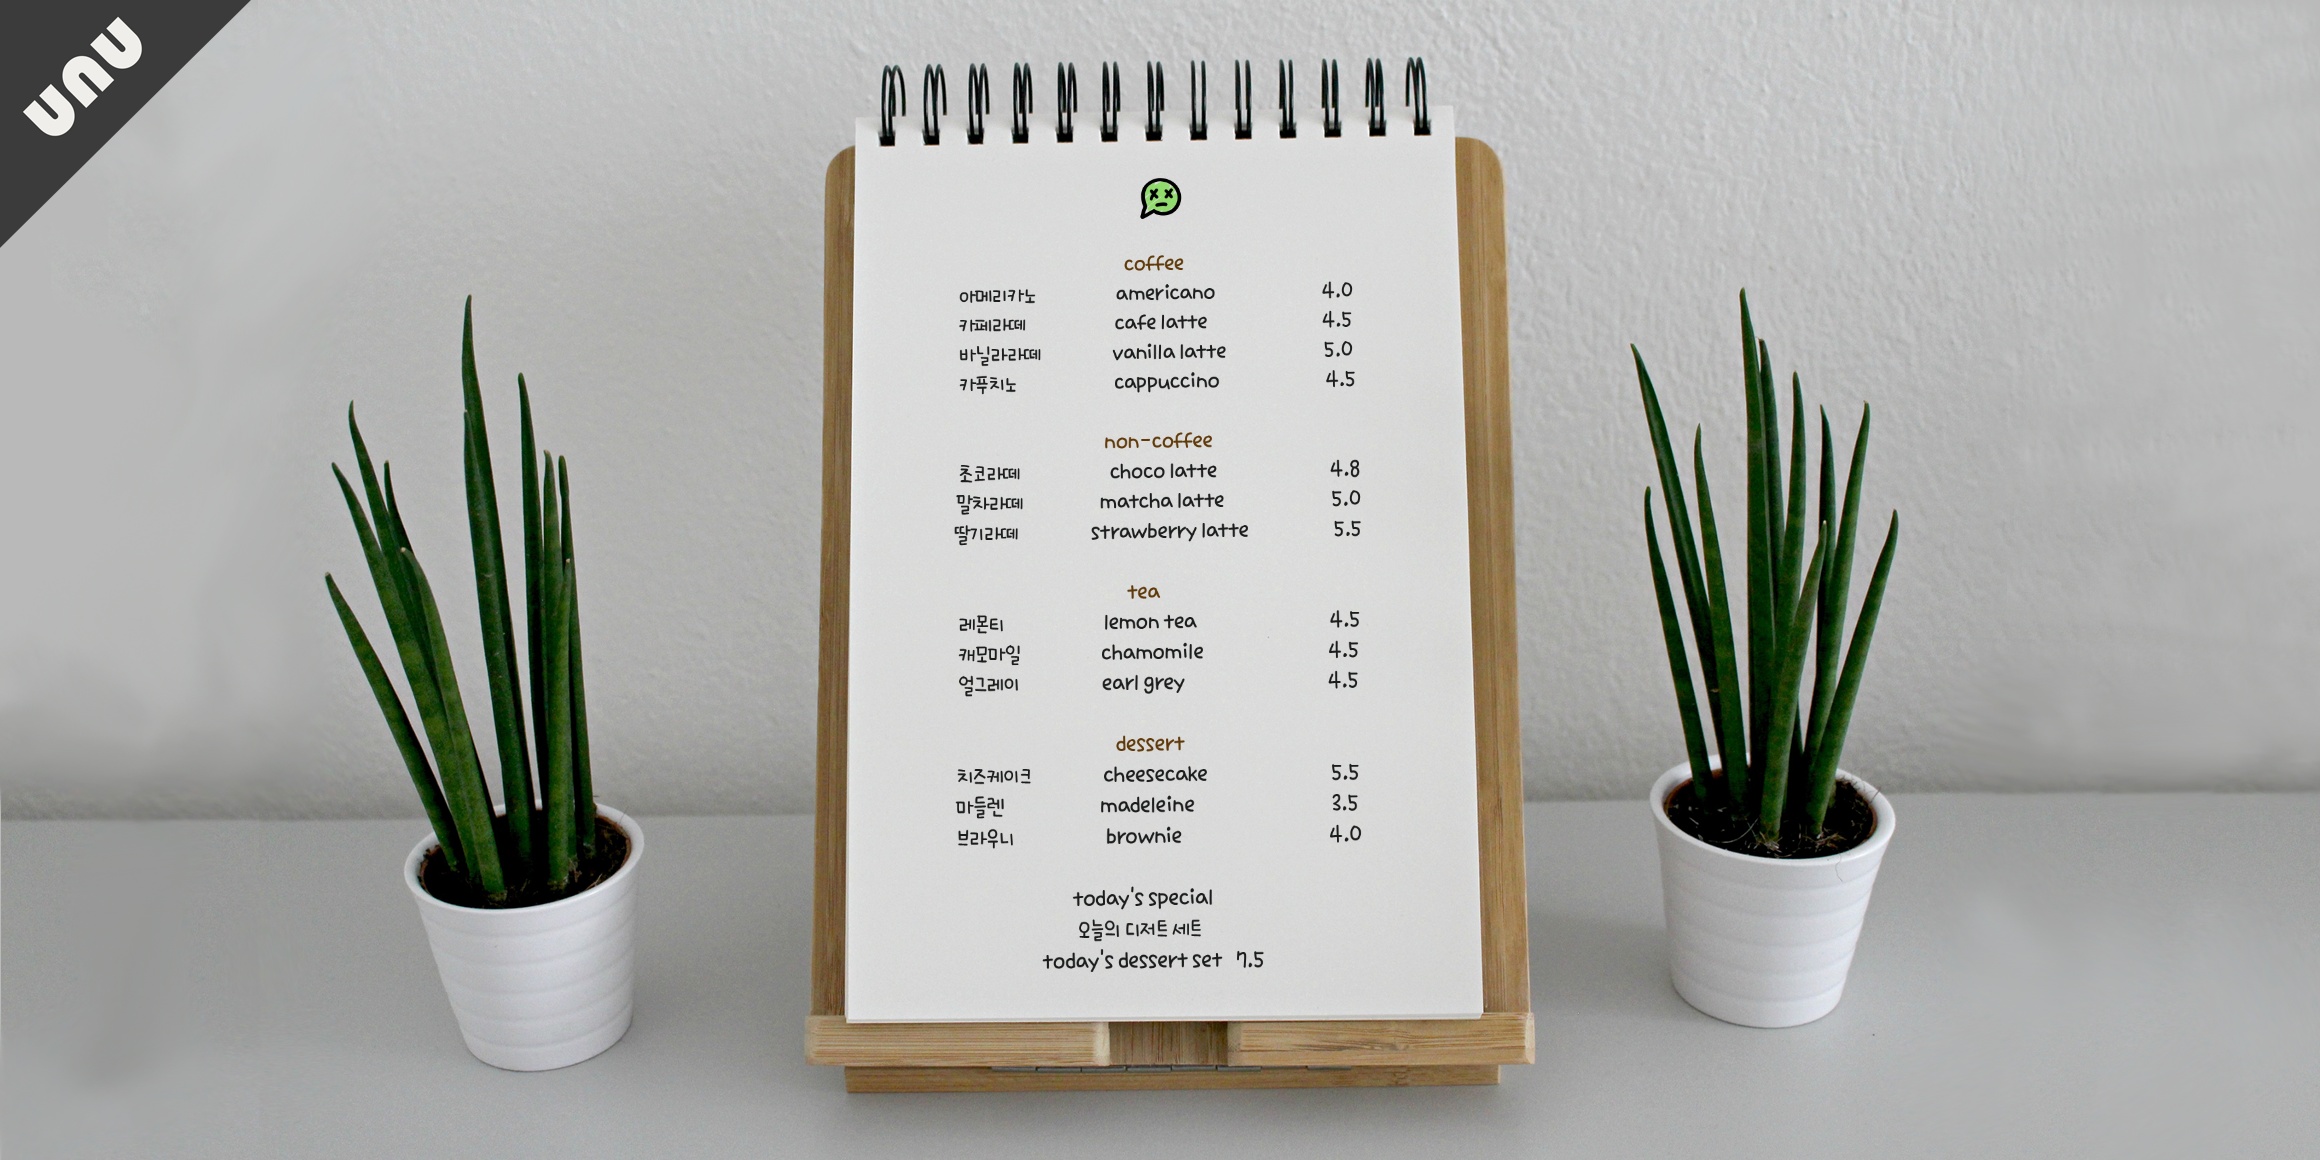 UNU
coffee
아메리카노 americano 4.0
카페라떼 cafe latte 4.5
바닐라라떼 vanilla latte 5.0
카푸치노 cappuccino 4.5
non-coffee
초코라떼 choco latte 4.8
말차라떼 matcha latte 5.0
딸기라떼 strawberry latte 5.5
tea
레몬티 lemon tea 4.5
캐모마일 chamomile 4.5
얼그레이 earl grey 4.5
dessert
치즈케이크 cheesecake 5.5
마들렌 madeleine 3.5
브라우니 brownie 4.0
today's special
오늘의 디저트 세트
today's dessert set 7.5